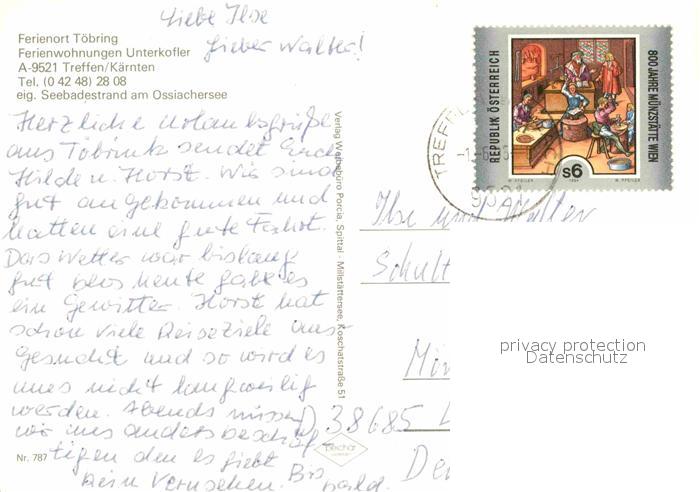 Ferienort Töbring
Ferienwohnungen Unterkofler
A-9521 Treffen/Kärnten
Tel. (0 42 48) 28 08
eig. Seebadestrand am Ossiachersee
Liebe Ilse
Lieber Walter!
Herzliche Urlaubsgrüße
aus Töbrink sendet Euch
Hilde u. Horst. Wir sind
gut angekommen und
hatten eine gute Fahrt.
Das Wetter war bislang
gut blos heute gabt es
ein Gewitter. Horst hat
schon viele Reiseziele aus-
gesucht und so wird es
uns nicht langweilig
werden. Abends müssen
wir uns anders beschäf-
tigen den es giebt
kein Vernsehen. Bis
bald.
Nr. 787
Verlag Werbebüro Porcia, Spittal - Millstättersee, Koschatstraße 51
REPUBLIK ÖSTERREICH
800 JAHRE MÜNZSTÄTTE WIEN
s6
TREFFEN
9521
Ilse und Walter
Schult
Mün
D 38685 L
De
privacy protection
Datenschutz